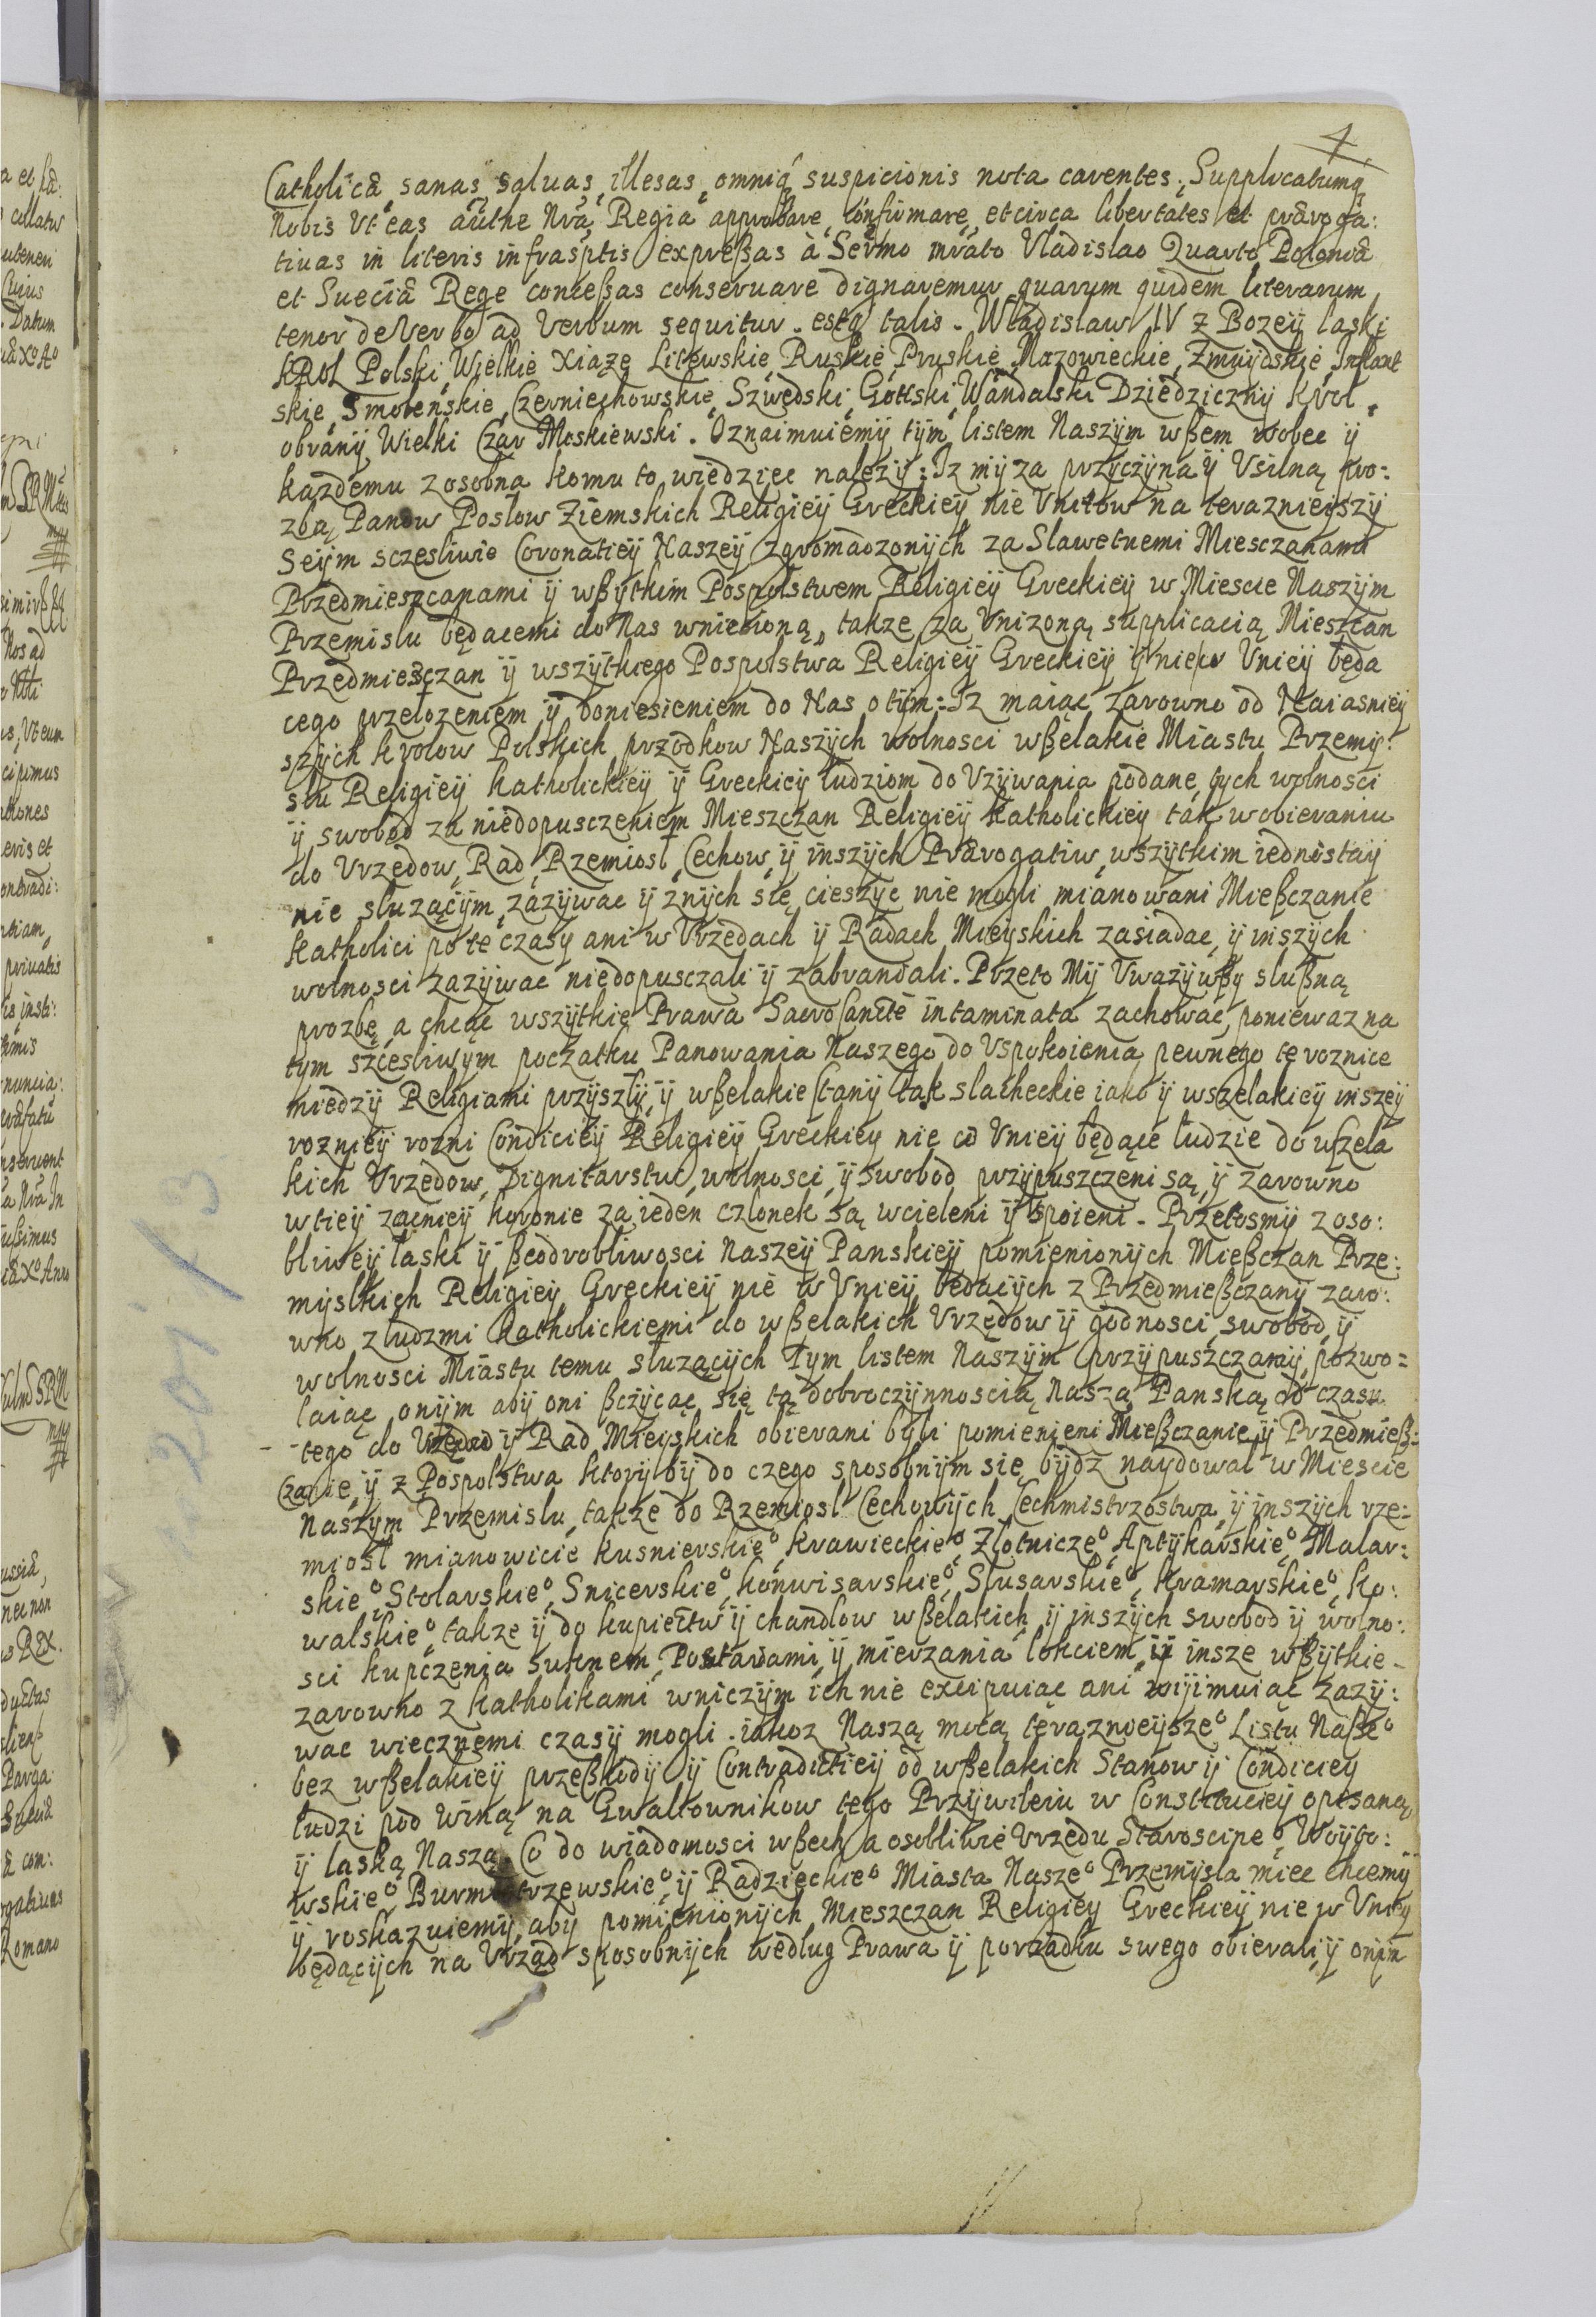 4.
Catholicâ sanas, saluas, illesas, omniq́ suspicionis nota carentes, Supplicatumq́
Nobis Vt eas authe Nrâ Regia approbare, confirmare, et circa libertates et prærogâ:
tiuas in literis infrasptis expreßas à Sermo mrato Vladislao Quarto Poloniæ
et Sueciæ Rege conceßas conseruare dignaremur quarum quidem literarum
tenor de Verbo ad Verbum sequitur estq́ talis. Wladislaw IV z Bozeÿ laski
KROL Polski Wielkie Xiązę Litewskie, Ruskie, Pruskie, Mazowieckie, Zmuÿdskie, Inflant
skie, Smolenskie, Czerniechowskie, Szwedski, Gotski, Wandalski Dziedzicznÿ Krol,
obranÿ Wielki Czar Moskiewski. Oznaimuiemÿ tÿm listem Naszÿm wßem wobec ÿ
kazdemu zosobna komu to wiedziec nalezÿ: Iz mÿ za przyczÿną ÿ Vsilną pro:
zbą Panow Posłow Ziemskich Religieÿ Greckieÿ nie Vnitow na terazniejszÿ
Seÿm sczesliwie Coronatieÿ Naszeÿ zgromadzonÿch za Slawetnemi Miesczanami
Przedmieszcanami ÿ wßÿtkim Pospolstwem Religieÿ Greckieÿ w Miescie Naszÿm
Przemislu będacemi do Nas wniesioną, takze za Vnizoną supplicacią Mieszcan
Przedmieszczan ÿ wszÿtkiego Pospolstwa Religieÿ Greckieÿ ÿ nie w Vnieÿ będa
cego przelozeniem ÿ doniesieniem do Nas o tÿm: Iz maiąc zarowno od Naiasnieÿ
szÿch Krolow Polskich przodkow Naszÿch wolnosci wßelakie Miastu Przemÿ:
slu Religieÿ Katholickieÿ ÿ Greckieÿ ludziom do Vzÿwania podane, tych wolnosci
ÿ swobod za niedopusczeniem Mieszczan Religieÿ Katholickieÿ tak w obieraniu
do Vrzedow, Rad, Rzemiosl, Cechow, ÿ inszÿch Prærogatiw, wszÿtkim iednostaÿ
nie sluzącÿm, zazÿwac ÿ znÿch się cieszÿc nie mogli mianowani Mießczanie
Katholici po te czasy ani w Vrzedach ÿ Radach Mieÿskich zasiadac, ÿ inszÿch
wolnosci zazÿwac niedopusczali ÿ zabraniali. Przeto Mÿ Vwazÿwßÿ slußną
prozbę a chcąc wszÿtkie Prawa Sacrosanctè intaminata zachowac, poniewaz na
tym szcesliwym początku Panowania Naszego do Vspokoienia pewnego te roznice
miedzÿ Religiami przÿszlÿ, ÿ wßelakie stanÿ tak slacheckie iako ÿ wszelakieÿ inszeÿ
roznieÿ rozni Condicieÿ Religieÿ Greckieÿ nie w Vnieÿ będące ludzie do wszela
kich Vrzedow, Dignitarstw, wolnosci, ÿ swobod przÿpuszczeni są, ÿ zarowno
w tieÿ zacnieÿ Koronie za ieden czlonek są wcieleni ÿ spoieni. Przetosmÿ z oso:
bliweÿ laski ÿ ßcodrobliwosci Naszeÿ Panskieÿ pomienionÿch Mießczan Prze:
mÿslkich Religieÿ Greckieÿ nie w Vnieÿ będącÿch z Przedmießczanÿ zaro:
wno z ludzmi Katholickiemi do wßelakich Vrzędow ÿ godnosci, swobod, ÿ
wolnosci Miastu temu sluzącÿch Tym listem Naszÿm przÿpuszczamÿ, pozwo=
laiąc onÿm abÿ oni ßczÿcąc się tą dobroczÿnnoscią Naszą Panską od czasu
tego do Vrzedow ÿ Rad Mieÿskich obierani bÿli pomienieni Mießczanie, ÿ Przedmieß:
czanie, ÿ z Pospolstwa ktorÿ bÿ do czego sposobnÿm się bÿdz naydowal w Miescie
Naszÿm Przemislu, takze do Rzemiosl Cechowÿch, Cechmistrzostwa, ÿ inszÿch rze:
miosl mianowicie kusnierskieº, krawieckieº, Zlotniczeº, Aptÿkarskieº, Malar:
skieº, Stolarskieº, Snicerskieº, Konwisarskieº, Slusarskieº, Kramarskieº, Ko:
walskieº, takze ÿ do kupiectw ÿ chandlow wßelakich, ÿ inszÿch swobod ÿ wolno:
sci kupczenia suknem, Postawami, ÿ mierzania lokciem, ÿ insze wßÿtkie
zarowno z Katholikami wniczÿm ich nie excipuiąc ani wÿimuiąc zazÿ:
wac wiecznemi czasÿ mogli. iakoz Naszą mocą terazniejszeº Listu Naßeº
bez wßelakieÿ przeßkodÿ ÿ Contradictieÿ od wßelakich Stanow ÿ Condicieÿ
ludzi pod winą na Gwaltownikow tego Przÿwileiu w Constitucieÿ opisaną,
ÿ laską Naszą. Co do wiadomosci wßech a osobliwie Vrzedu Staroscineº, Woÿto:
wskieº, Burmistrzewskieº, ÿ Radzieckieº Miasta Naszeº Przemÿsla miec chcemÿ
ÿ roskazuiemÿ, aby pomienionÿch Mieszczan Religieÿ Greckieÿ nie w Vnieÿ
będącÿch na Vrząd sposobnÿch według Prawa ÿ porzadku swego obierali, ÿ onÿm